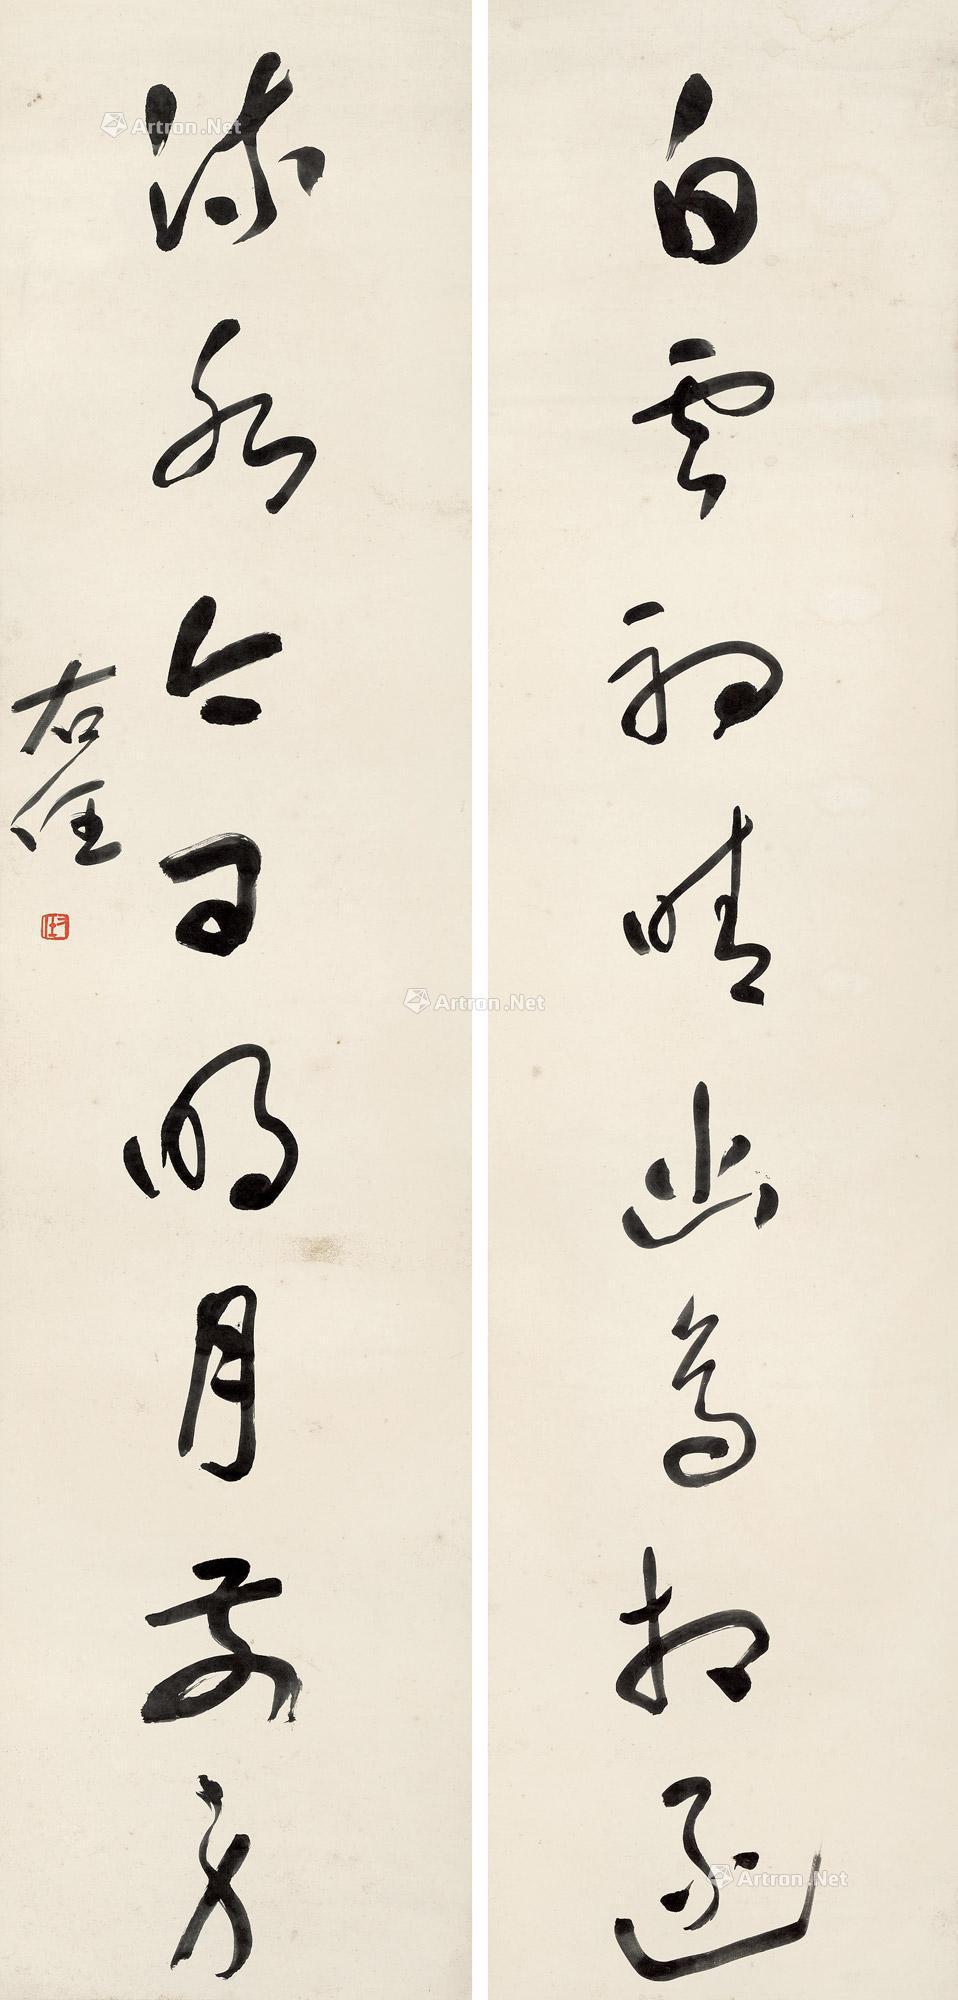 白雲初晴幽鳥相逐
流水今日明月前身
右任
Artron.Net
Artron.Net
Artron.Net